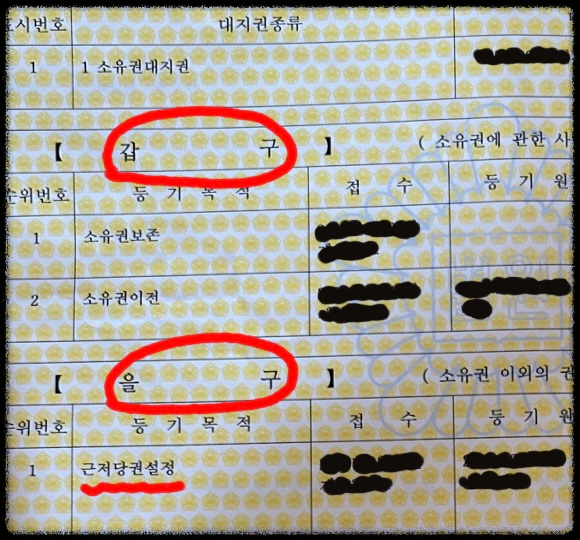 표시번호 대지권종류
1 1 소유권대지권
【 갑 구 】 ( 소유권에 관한 사
순위번호 등 기 목 적 접 수 등 기 원
1 소유권보존
2 소유권이전
【 을 구 】 ( 소유권 이외의 권
순위번호 등 기 목 적 접 수 등 기 원
1 근저당권설정